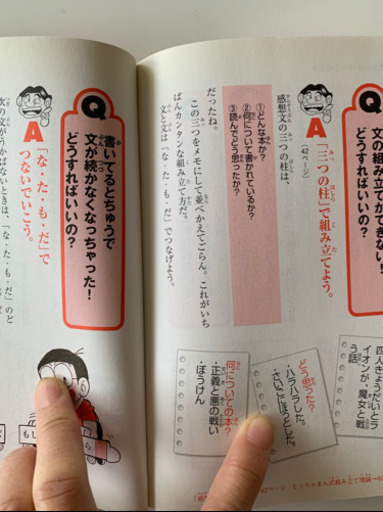 文の組み立てができない!
どうすればいいの?
A
「三つの柱」で組み立てよう。
(42ページ)
感想文の三つの柱は、
①どんな本か?
②何について書かれているか?
③読んでどう思ったか?
だったね。
この三つをメモにして並べかえてごらん。これがいち
ばんカンタンな組み立て方だ。
文と文は「な・た・も・だ」でつなげよう。
四人きょうだいとラ
イオンが、魔女と戦
う話
どう思った?
・ハラハラした。
・さいごほっとした。
何についての本?
・正義と悪の戦い
・ぼうけん
42ページ とっちゃまん式組み立て理論
Q
書いてるとちゅうで
文が続かなくなっちゃった!
どうすればいいの?
A
「な・た・も・だ」で
つないでいこう。
次の文がうかばないときは、「な・た・も・だ」のど
もし
ら